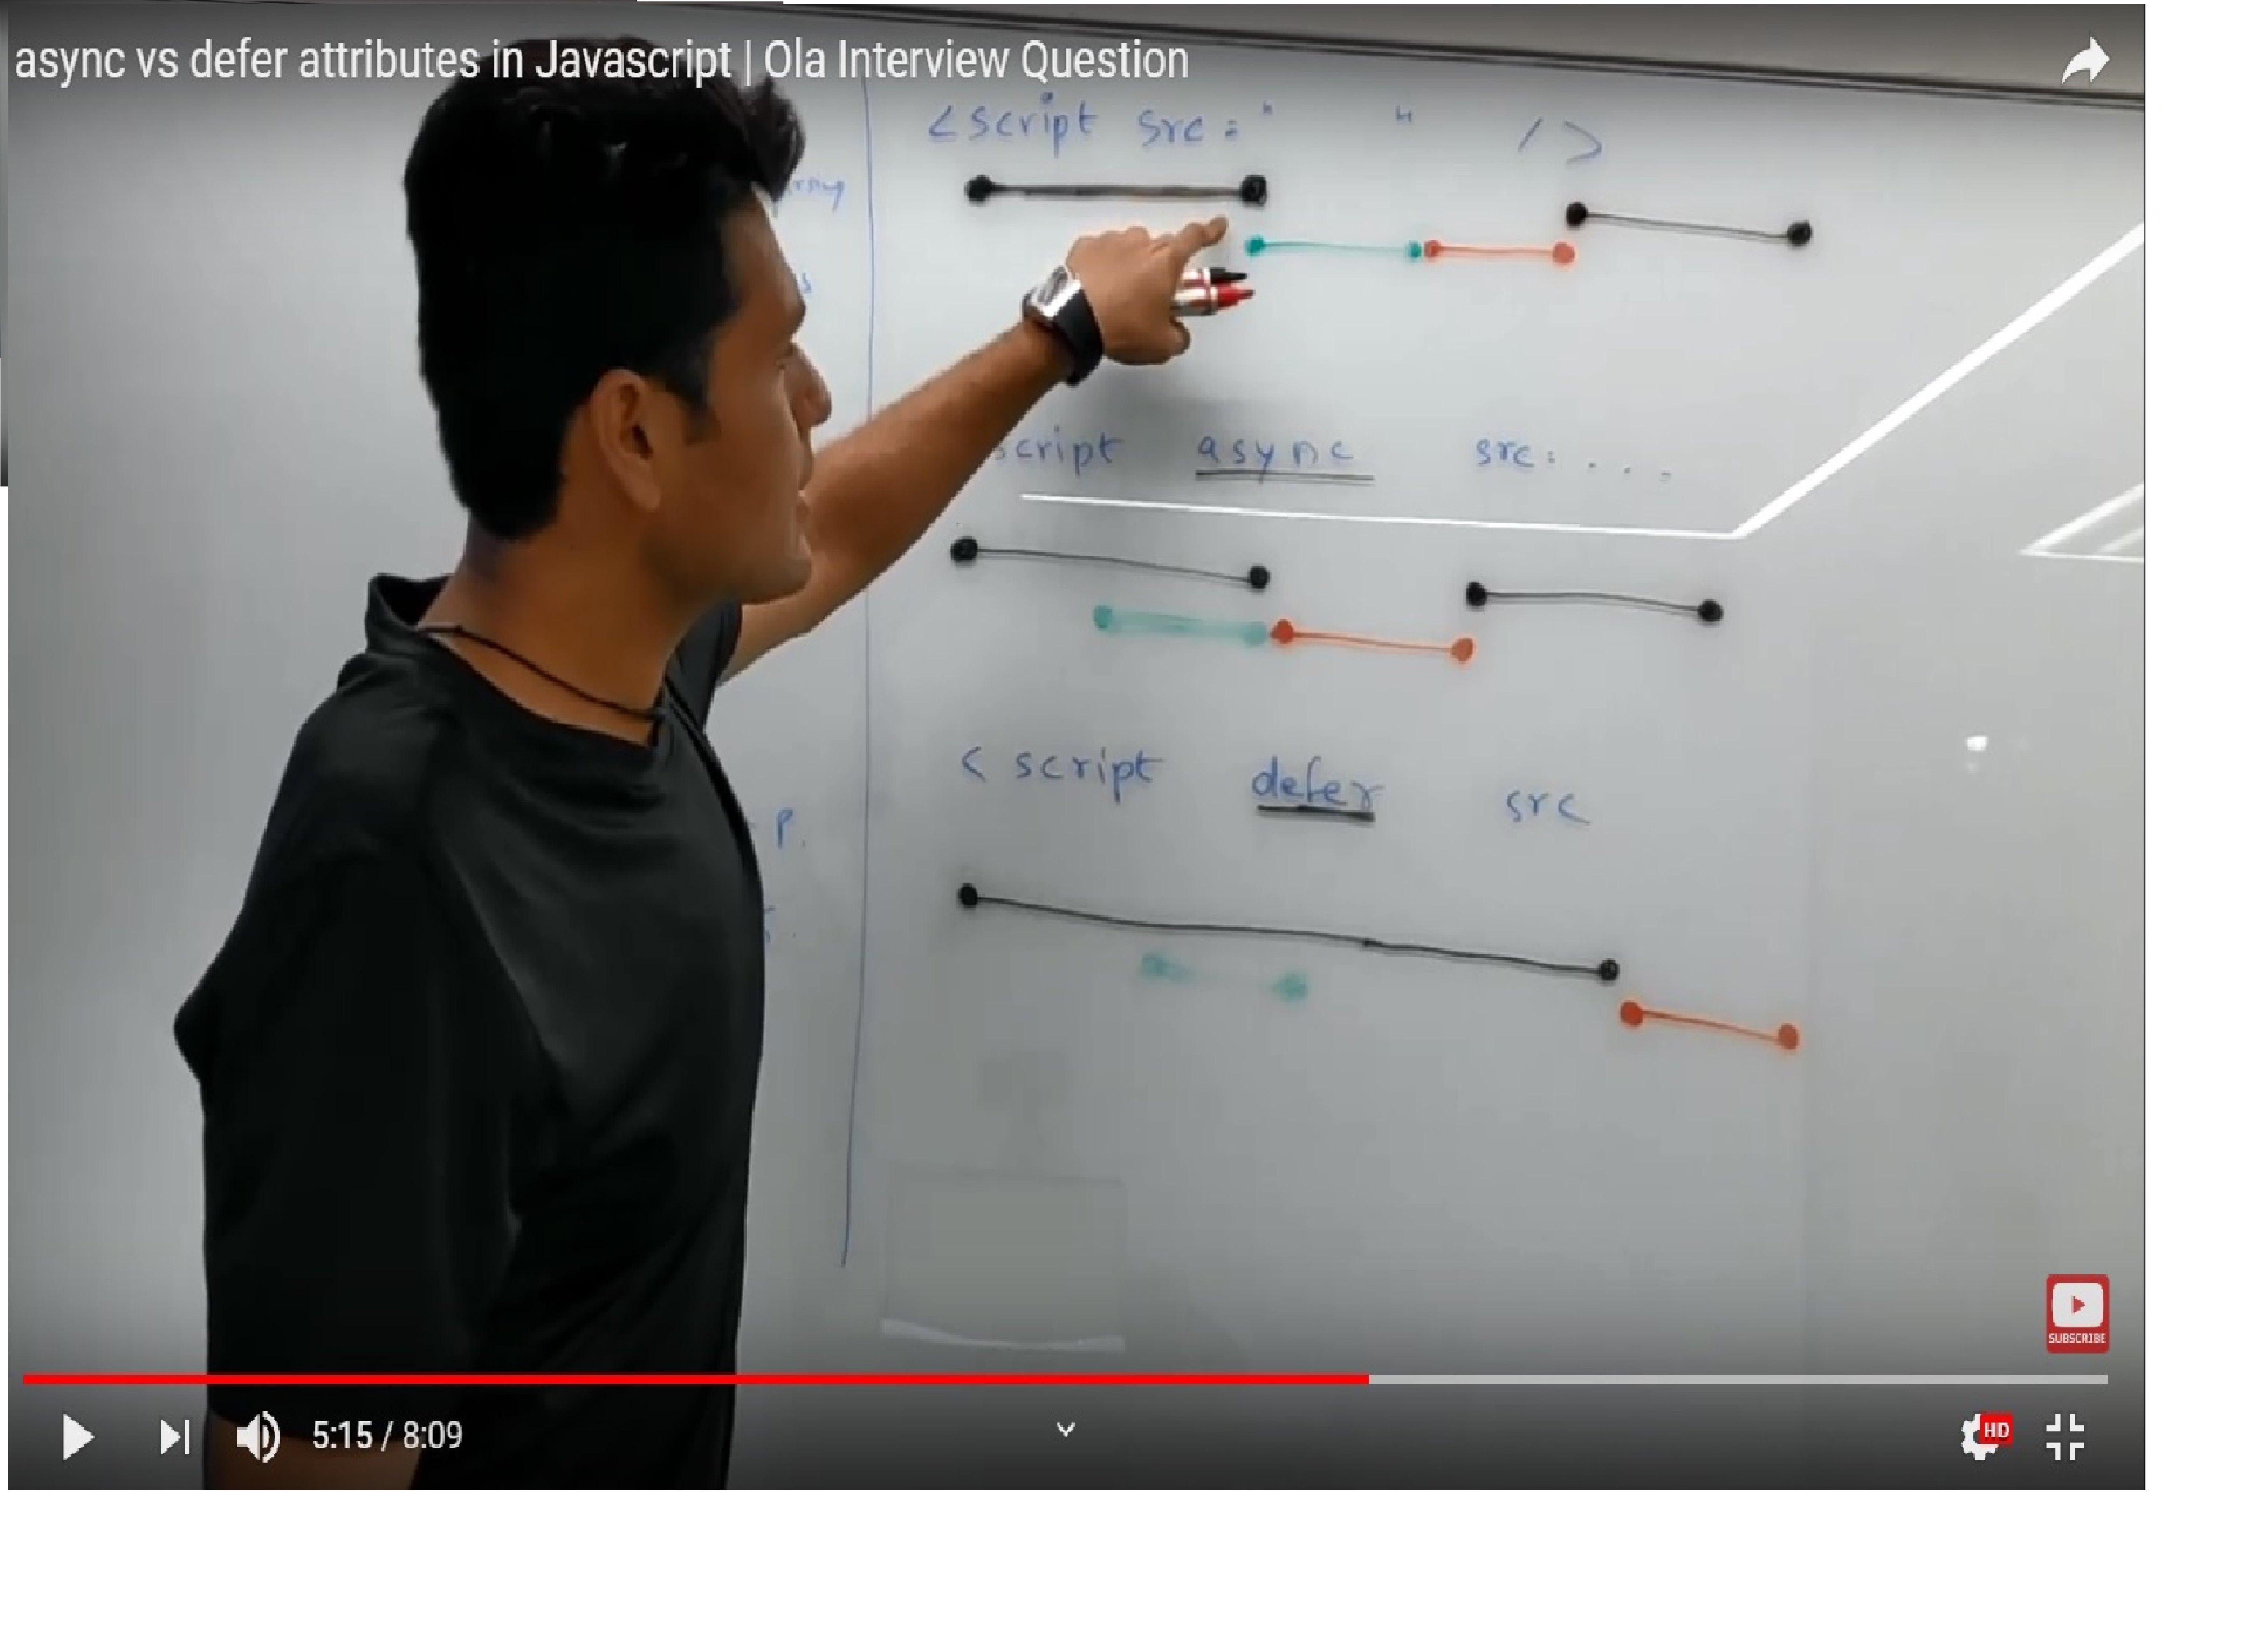 async vs defer attributes in Javascript | Ola Interview Question
<script src=" " />
script async src= ...
< script defer src
P.
SUBSCRIBE
5:15 / 8:09
HD